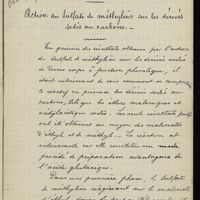 Action du sulfate de méthylène sur les dérivés
sodés au carbone.
En présence des résultats obtenus par l'action
du sulfate de méthylène sur les dérivés sodés
de divers corps à fonction phénolique, il
était intéressant de voir comment se
réactif en présence des dérivés sodés au
carbone, tels que les éthers maloniques et
acétylacétique sodés. Les seuls résultats
ont été obtenus au moyen des malonates
d'éthyle et de méthyle. La réaction est
intéressante car elle constitue un
procédé de préparation avantageux de
l'acide glutarique.
Dans une première phase, le sulfate
de méthylène réagissant sur le malonate